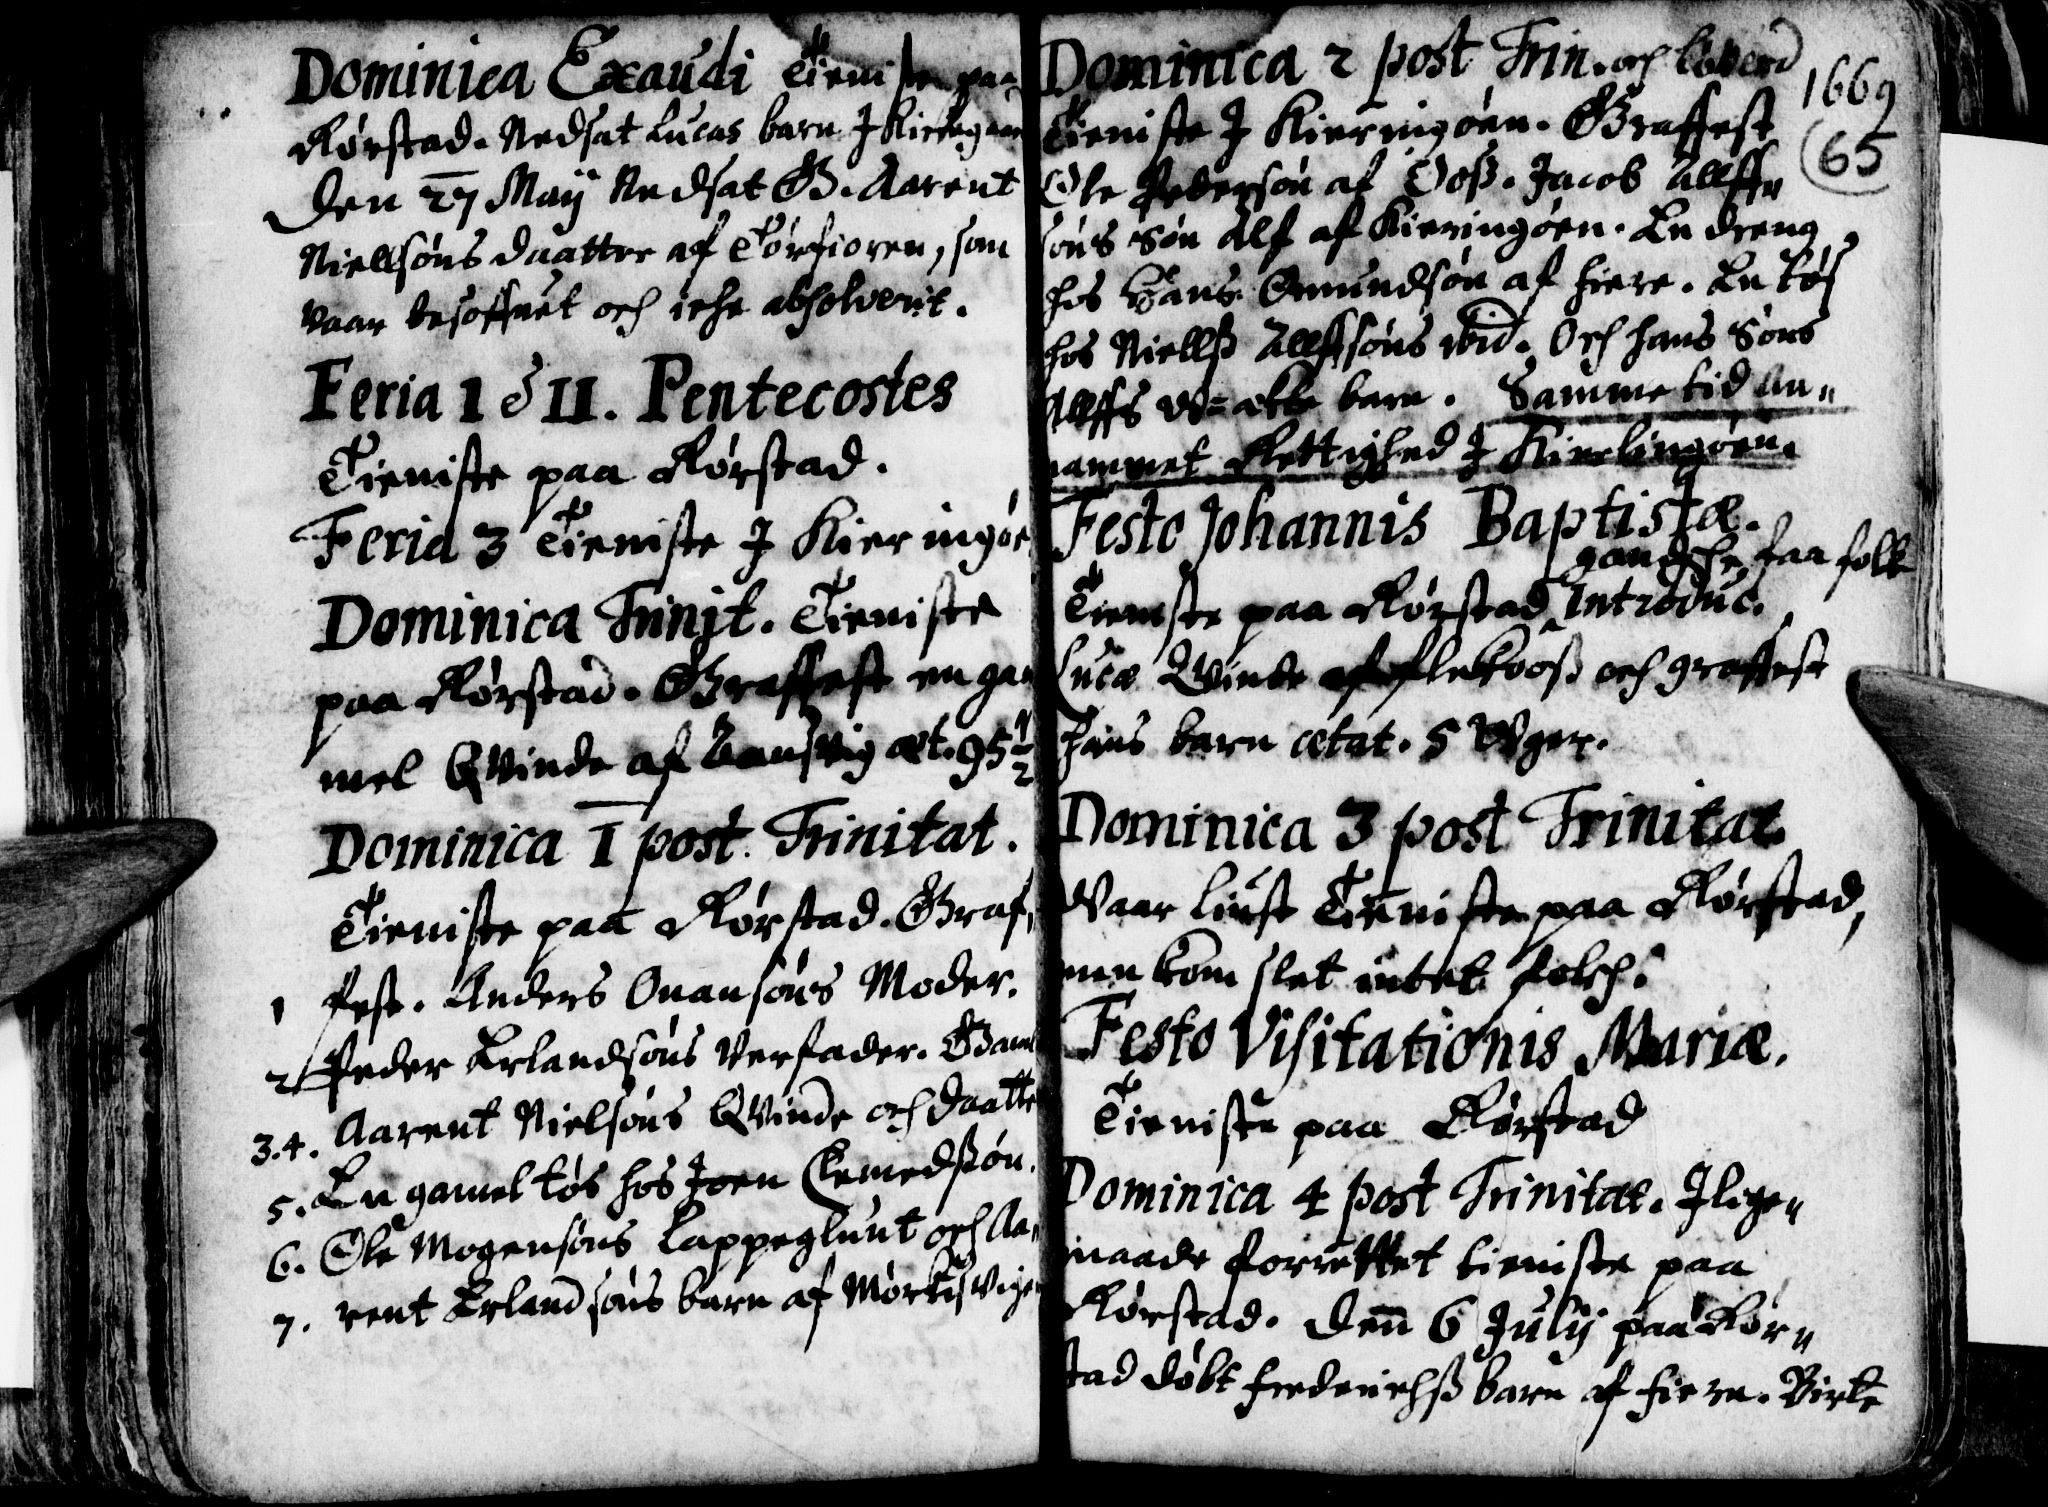 Dominica Exaudi Tieniste paa
Rørstad. Nedsat Lucas barn J Kirkegaar
Den 27 Maÿ Nedsat B. Aarent
Niellsøns daatter af Tørfioren, som
vaar besoffuet och iche absolverit.
Feria 1 & II. Pentecostes
Tieniste paa Rørstad.
Feria 3 Tieniste J Kieringøe
Dominica Trinit. Tieniste
paa Rørstad. Graffest en ga
mel Qvinde af æt. 95 1/2
Dominica I post. Trinitat.
Tieniste paa Rørstad. Graf,
1 fest. Anders Onansøns Moder.
2 Peder Erlandsøns Verfader. Gaml
3.4. Aarent Nielsøns Qvinde och daatte
5. En gamel tøs hos Joen Clemedsøn.
6. Ole Mogensøns Lappeglunt och Aa,
7. rent Erlandsøns barn af Mørkisvige
Dominica 2 post Trin. och Løverd
1669
65
Tieniste J Kieringøen. Graffest
Ole Pedersøn af Voß. Jacob Allff„
søns Søn Alf af Kieringøen. En dreng
hos Hans Omundsøn af fiere. En tøs
hos Niellß Allffsøns ibid. Och hans Søns
Allffs barn. Samme tid an„
nammet Rettighed J Kierlingøen.
Festo Johannis Baptistæ.
gandsche faa folk
Tieniste paa Rørstad Introduc.
Lucæ Qvinde af och graffest
hans barn ætat. 5 Vger.
Dominica 3 post Trinitat.
Vaar liust Tieniste paa Rørstad,
men kom slet intet folch.
Festo Visitationis Mariæ.
Tieniste paa Rørstad
Dominica 4 post Trinitat. Jlige„
maade forrettet tieniste paa
Rørstad. Den 6 Julÿ paa Rør„
stad døbt frederichß barn af fiere. Birte